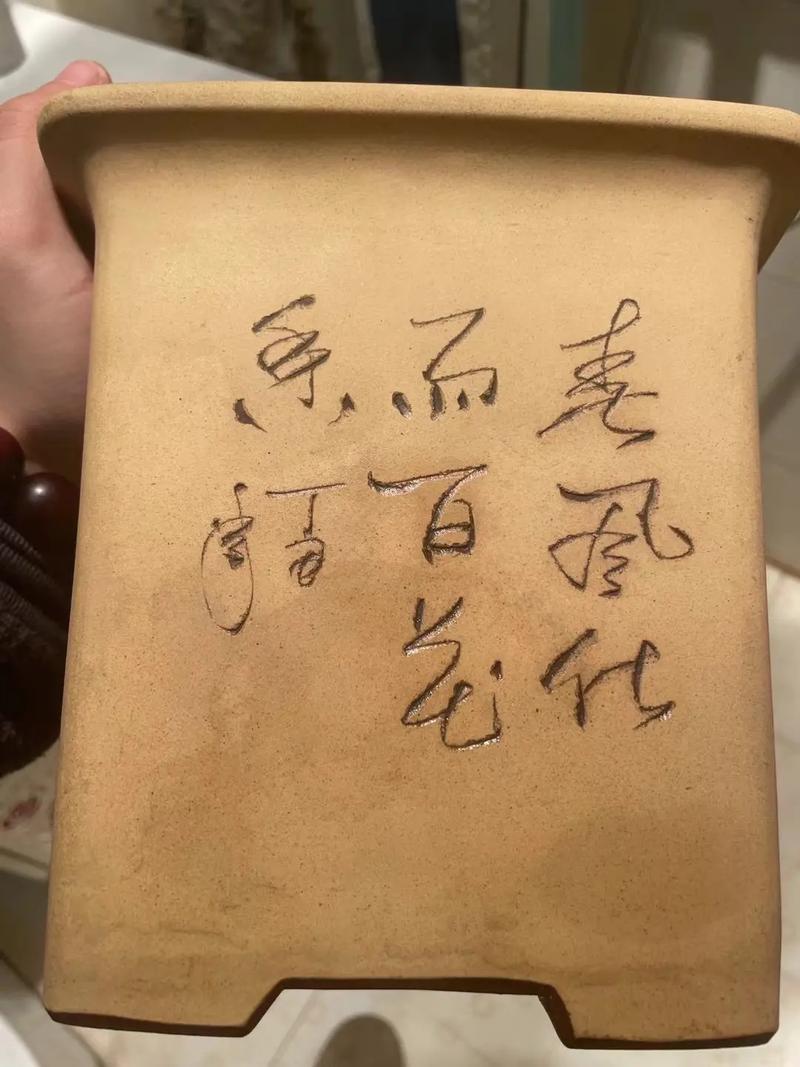 春风化
雨百花
香